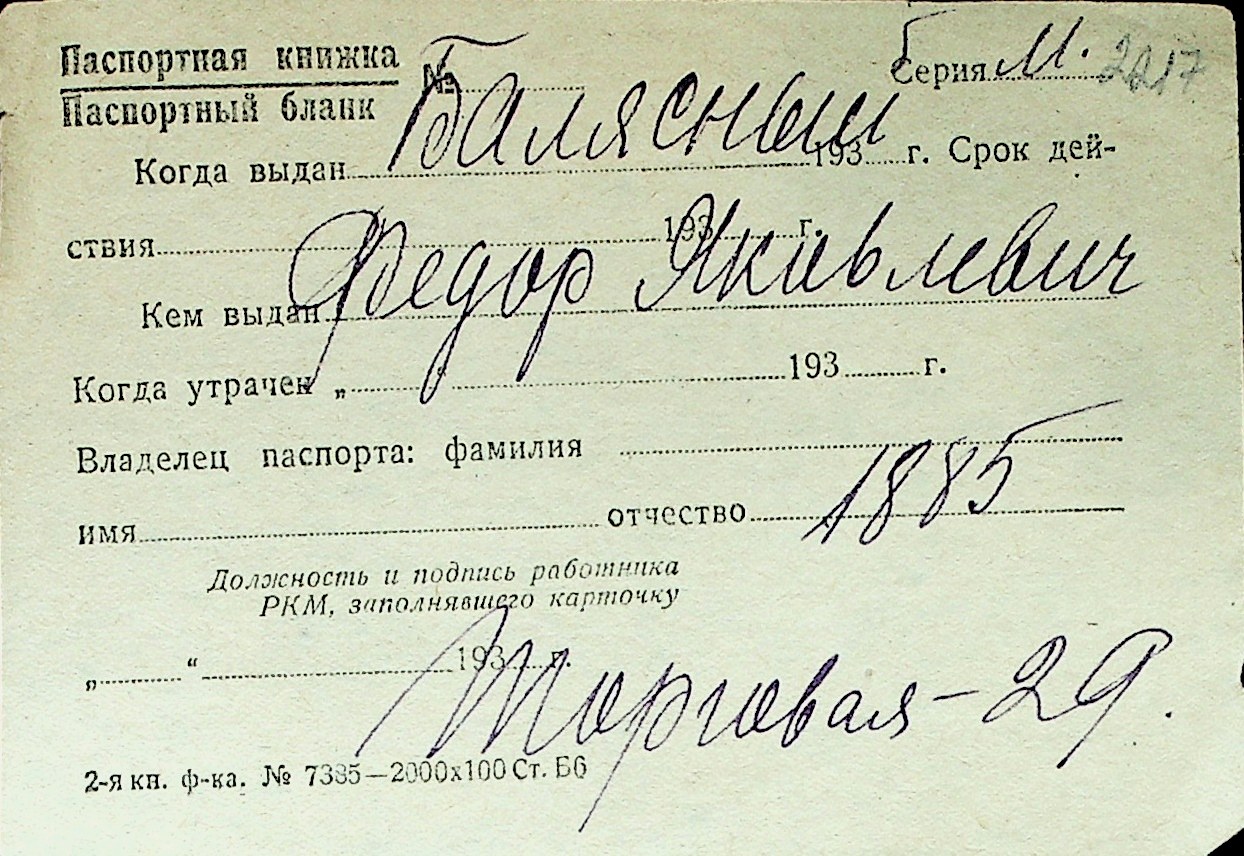 Паспортная книжка
Паспортный бланк № Серия М. 2217
Балясный
Когда выдан 193 г. Срок дей-
ствия 193 г.
Федор Яковлевич
Кем выдан
Когда утрачен „ 193 г.
Владелец паспорта: фамилия
1885
имя отчество
Должность и подпись работника
РКМ, заполнявшего карточку
„ “ 193 г.
Торговая – 29.
2-я кн. ф-ка. № 7385—2000х100 Ст. Б6